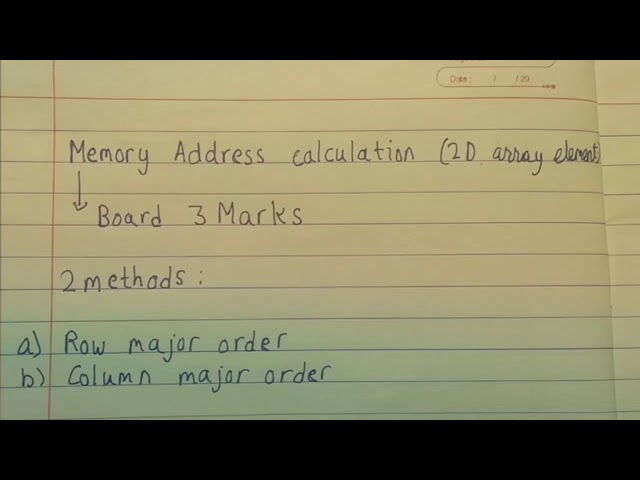 Date: / /20
Memory Address calculation (2D array element)
Board 3 Marks
2 methods:
a) Row major order
b) Column major order